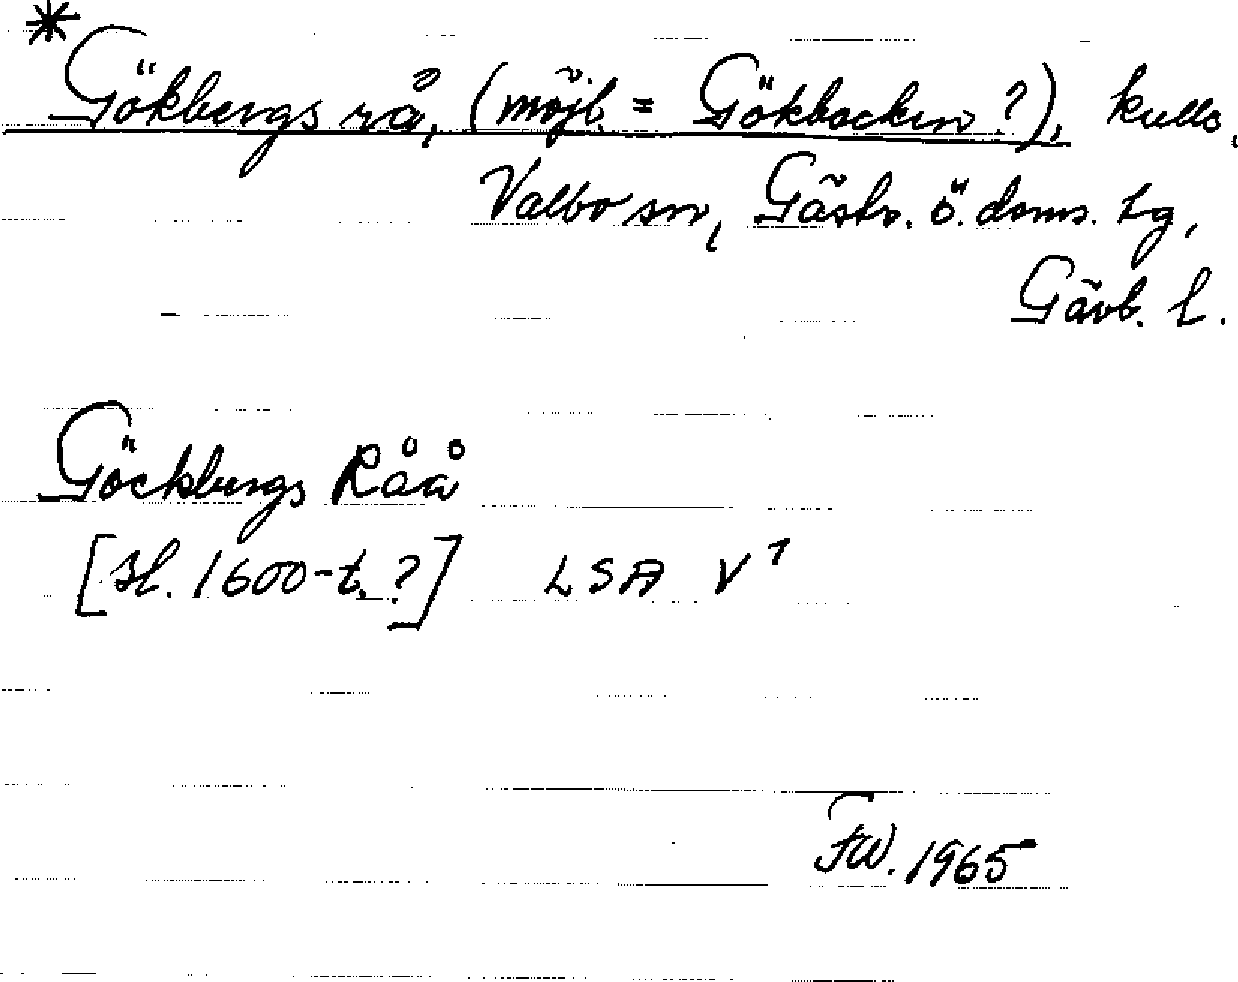 *
Gökbergs rå, (möjl. = Gökbacken?), kulle,
Valbo sn, Gästr. ö. doms. tg,
Gävb. l.
Göckbergs Råå
[sl. 1600-t.?] LSA V¹
FW. 1965